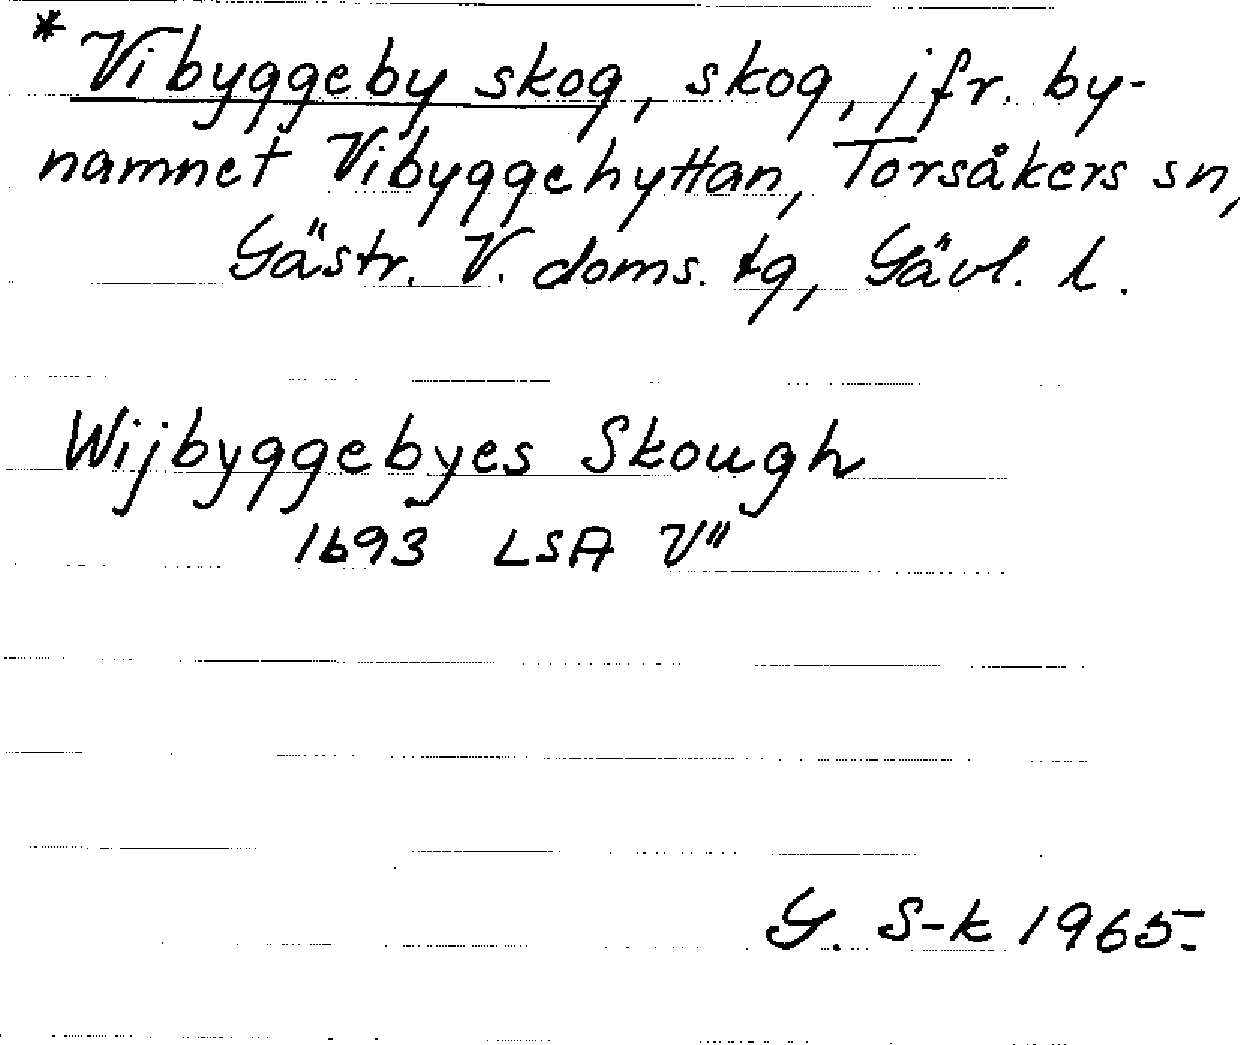 * Vibyggeby skog, skog, jfr. by-
namnet Vibyggehyttan, Torsåkers sn,
Gästr. V. doms. tg, Gävl. l.
Wijbyggebyes Skough
1693 LSA V"
G. S-k 1965.